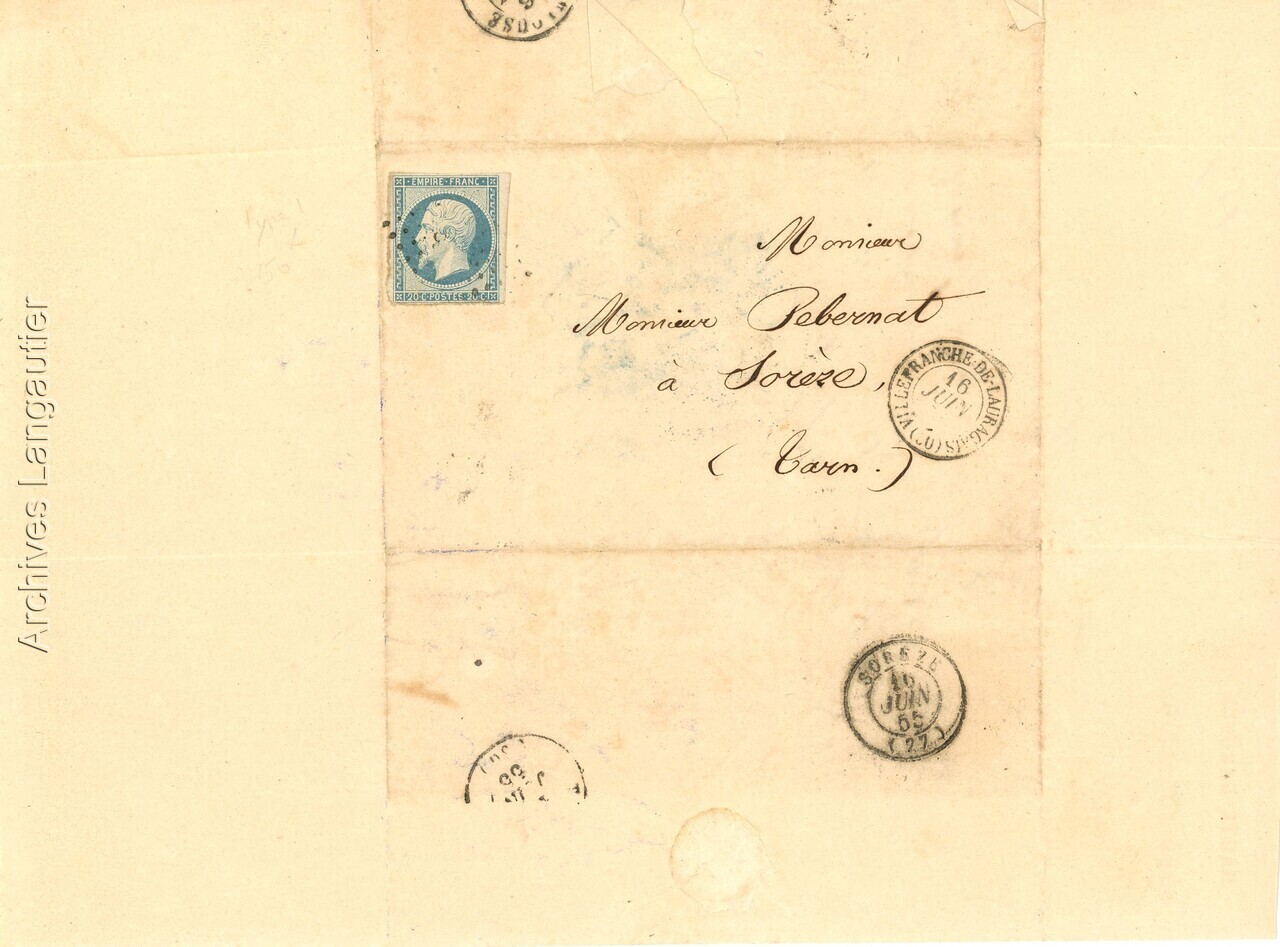 EMPIRE·FRANC·
20·C·POSTES·20·C·
Monsieur
Monsieur Pebernat
à Sorèze,
(Tarn.)
VILLEFRANCHE-DE-LAURAGAIS
16
JUIN
SORÈZE
16
JUIN
55
(77)
Archives Langautier